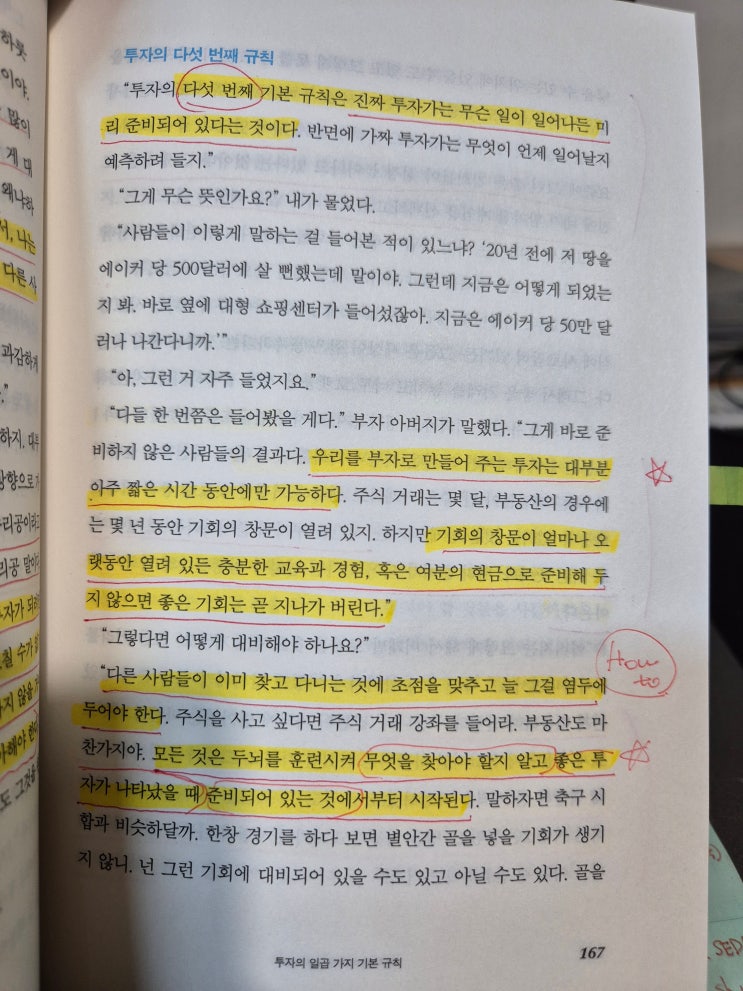 하룻
이야.
많이
게 대
왜냐하
서, 나는
다른 사
과감하게
."
하지. 대부
방향으로 가
우리공이라고
리공 말이다
투자의 다섯 번째 규칙
"투자의 다섯 번째 기본 규칙은 진짜 투자가는 무슨 일이 일어나든 미
리 준비되어 있다는 것이다. 반면에 가짜 투자가는 무엇이 언제 일어날지
예측하려 들지."
"그게 무슨 뜻인가요?" 내가 물었다.
"사람들이 이렇게 말하는 걸 들어본 적이 있느냐? '20년 전에 저 땅을
에이커 당 500달러에 살 뻔했는데 말이야. 그런데 지금은 어떻게 되었는
지 봐. 바로 옆에 대형 쇼핑센터가 들어섰잖아. 지금은 에이커 당 50만 달
러나 나간다니까.'"
"아, 그런 거 자주 들었지요."
"다들 한 번쯤은 들어봤을 게다." 부자 아버지가 말했다. "그게 바로 준
비하지 않은 사람들의 결과다. 우리를 부자로 만들어 주는 투자는 대부분
아주 짧은 시간 동안에만 가능하다. 주식 거래는 몇 달, 부동산의 경우에
는 몇 년 동안 기회의 창문이 열려 있지. 하지만 기회의 창문이 얼마나 오
랫동안 열려 있든 충분한 교육과 경험, 혹은 여분의 현금으로 준비해 두
지 않으면 좋은 기회는 곧 지나가 버린다."
"그렇다면 어떻게 대비해야 하나요?"
How
to
"다른 사람들이 이미 찾고 다니는 것에 초점을 맞추고 늘 그걸 염두에
두어야 한다. 주식을 사고 싶다면 주식 거래 강좌를 들어라. 부동산도 마
찬가지야. 모든 것은 두뇌를 훈련시켜 무엇을 찾아야 할지 알고 좋은 투
자가 나타났을 때 준비되어 있는 것에서부터 시작된다. 말하자면 축구 시
합과 비슷하달까. 한창 경기를 하다 보면 별안간 골을 넣을 기회가 생기
지 않니. 넌 그런 기회에 대비되어 있을 수도 있고 아닐 수도 있다. 골을
투자의 일곱 가지 기본 규칙
167